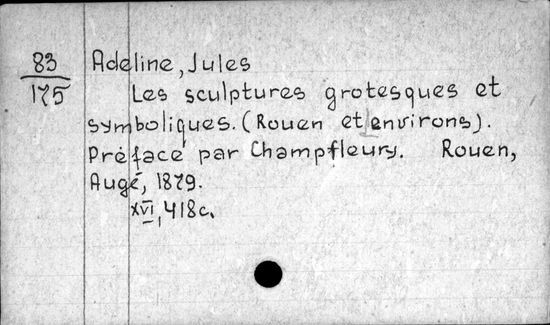 83
175
Adeline, Jules
Les sculptures grotesques et
symboliques. (Rouen et environs).
Préface par Champfleury. Rouen,
Augé, 1879.
XVI, 418c.